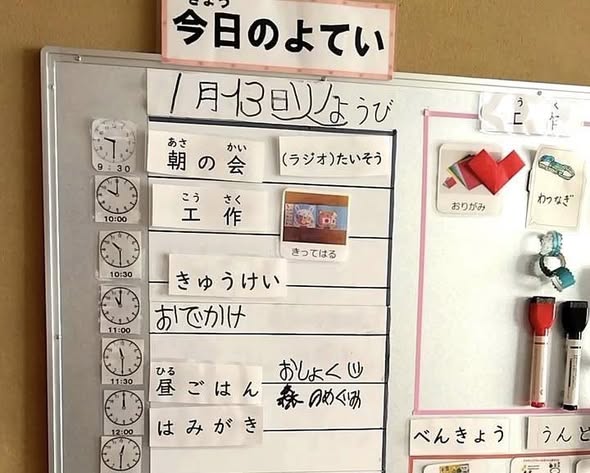 きょう
今日のよてい
1月13日火ようび
あさ かい
朝の会
(ラジオ)たいそう
10:00
こう さく
工作
きってはる
10:30
きゅうけい
11:00
おでかけ
11:30
ひる
昼ごはん
おしょく
森のめぐみ
12:00
はみがき
こう さく
工作
おりがみ
わっなぎ
べんきょう
うんど